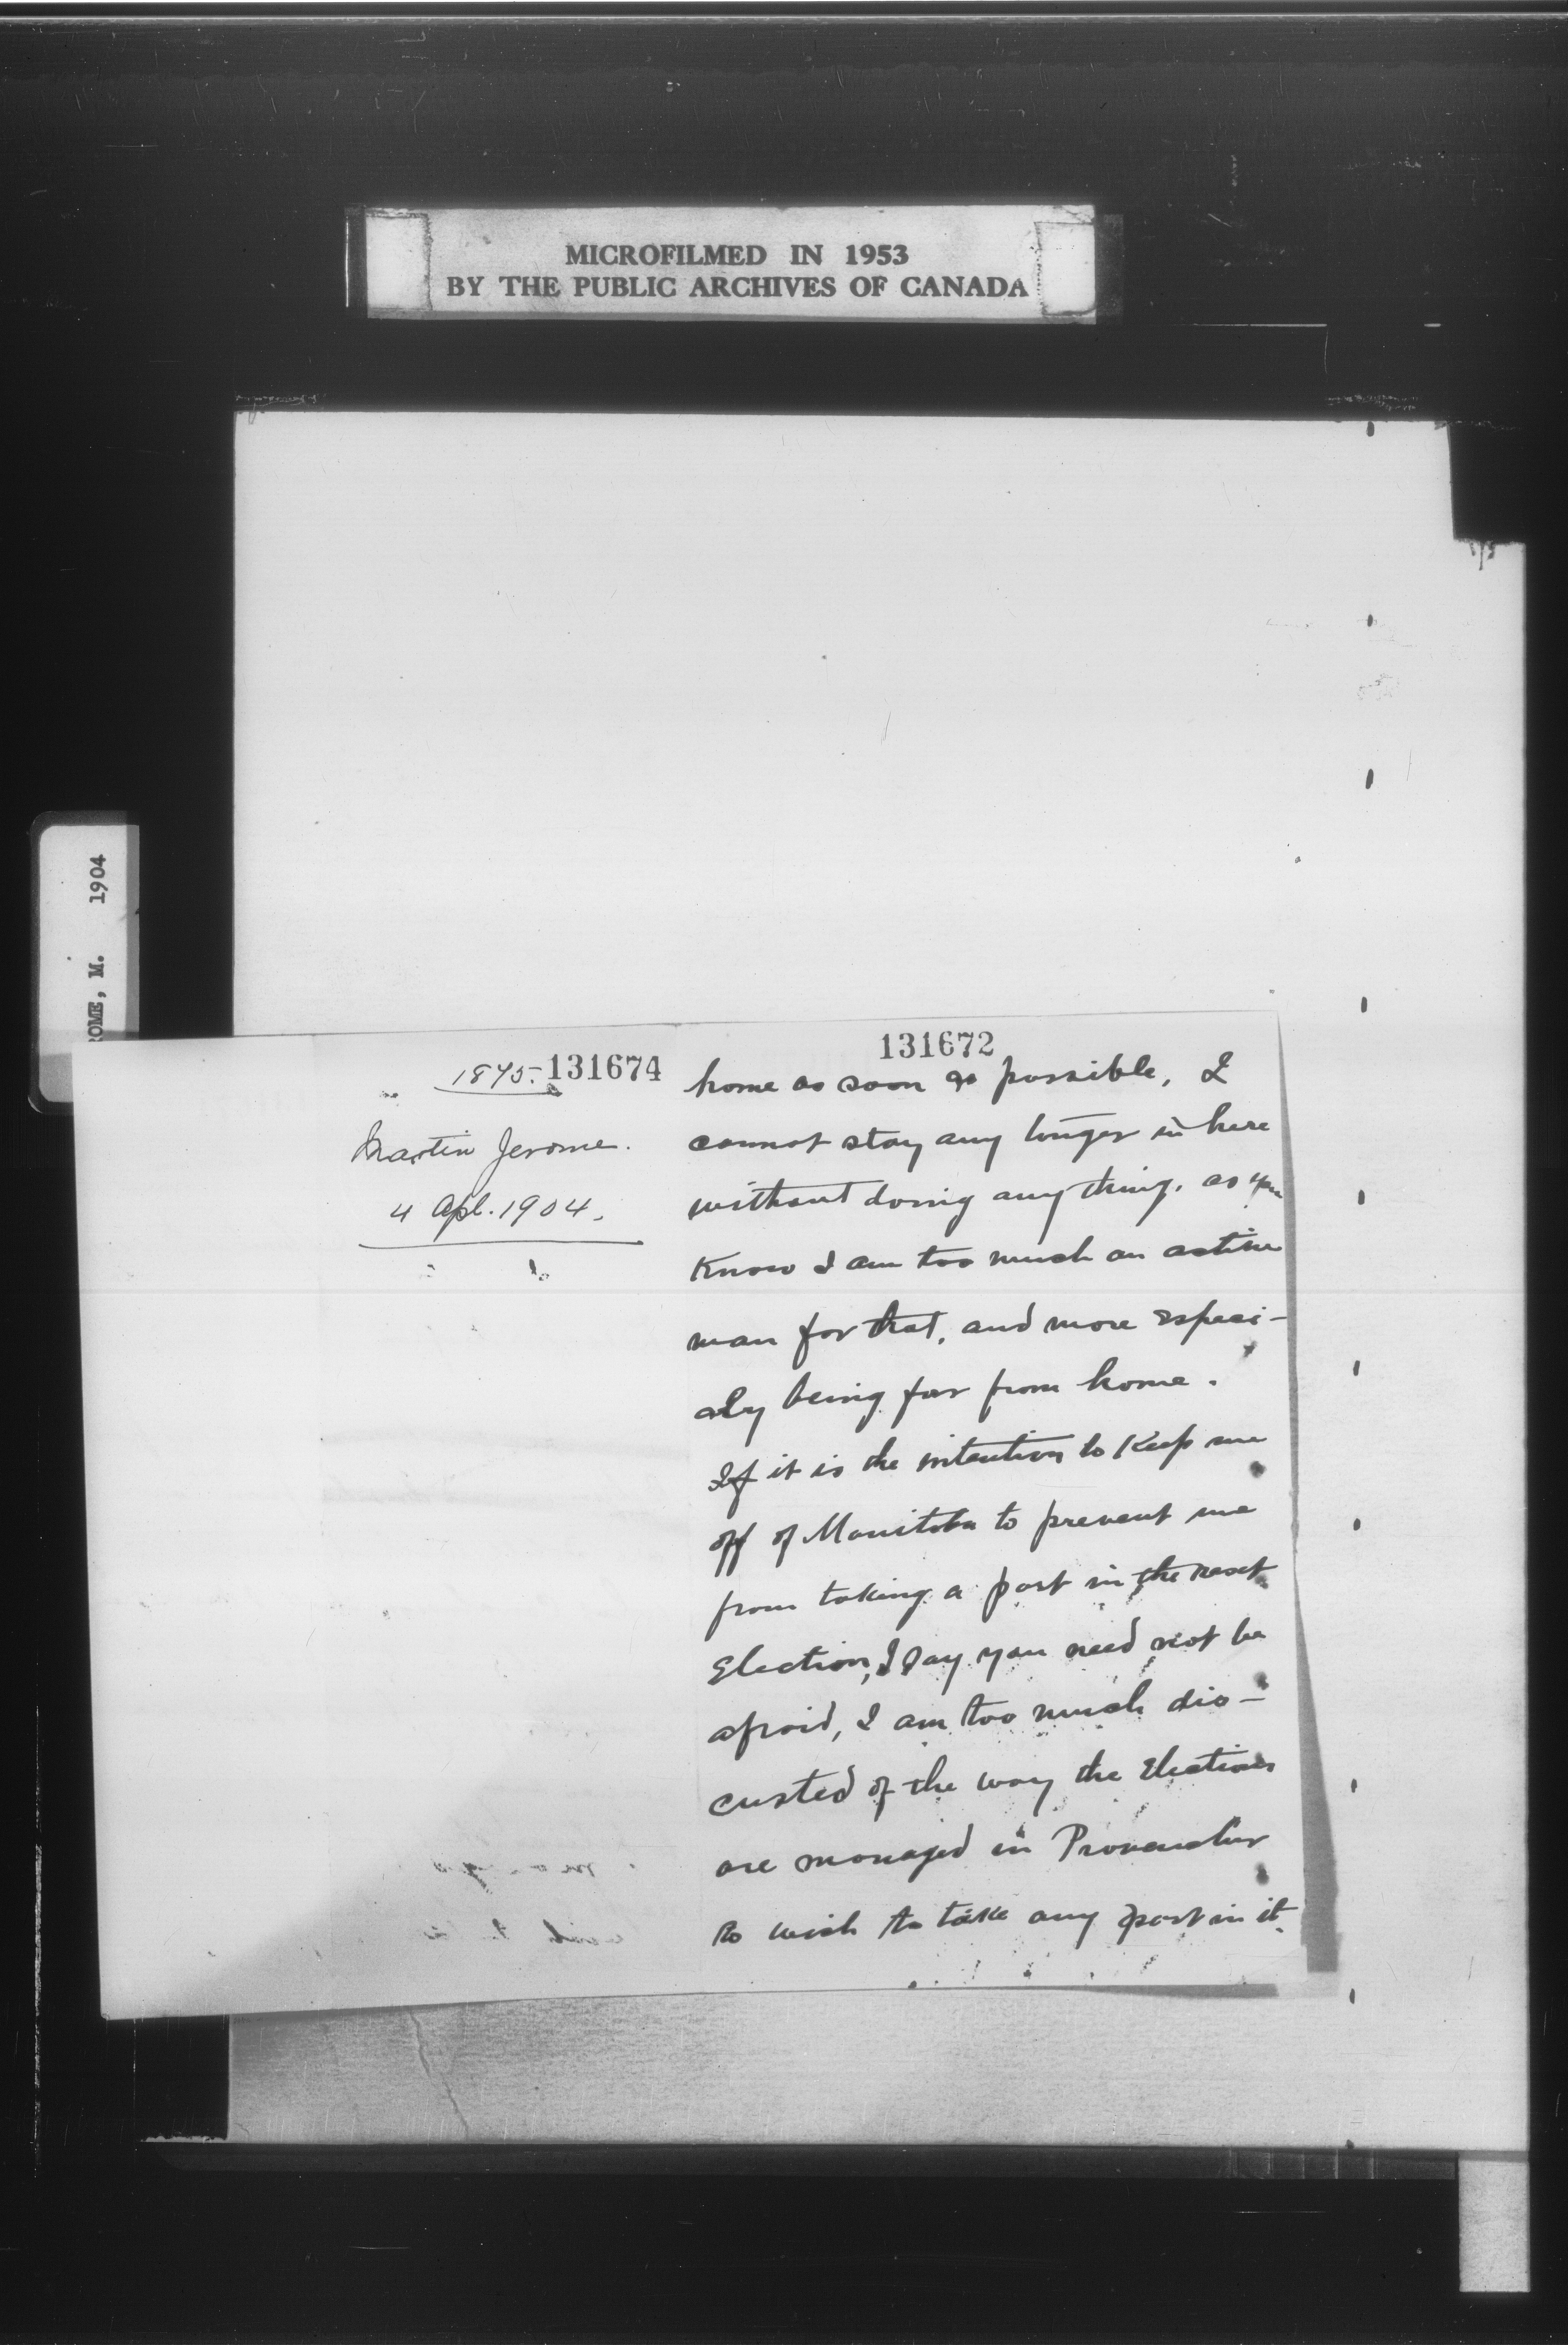 MICROFILMED IN 1953
BY THE PUBLIC ARCHIVES OF CANADA
ROME, M. 1904
1875. 131674
Martin Jerome.
4 Apl. 1904.
131672
home as soon as possible, I
cannot stay any longer in here
without doing any thing. as you
Know I am too much an active
man for that, and more especi-
aly being far from home.
If it is the intention to Keep me
off of Manitoba to prevent me
from taking a part in the next
Election, I say you need not be
afraid, I am too much dis-
custed of the way the Elections
are managed in Provencher
to wish to take any part in it